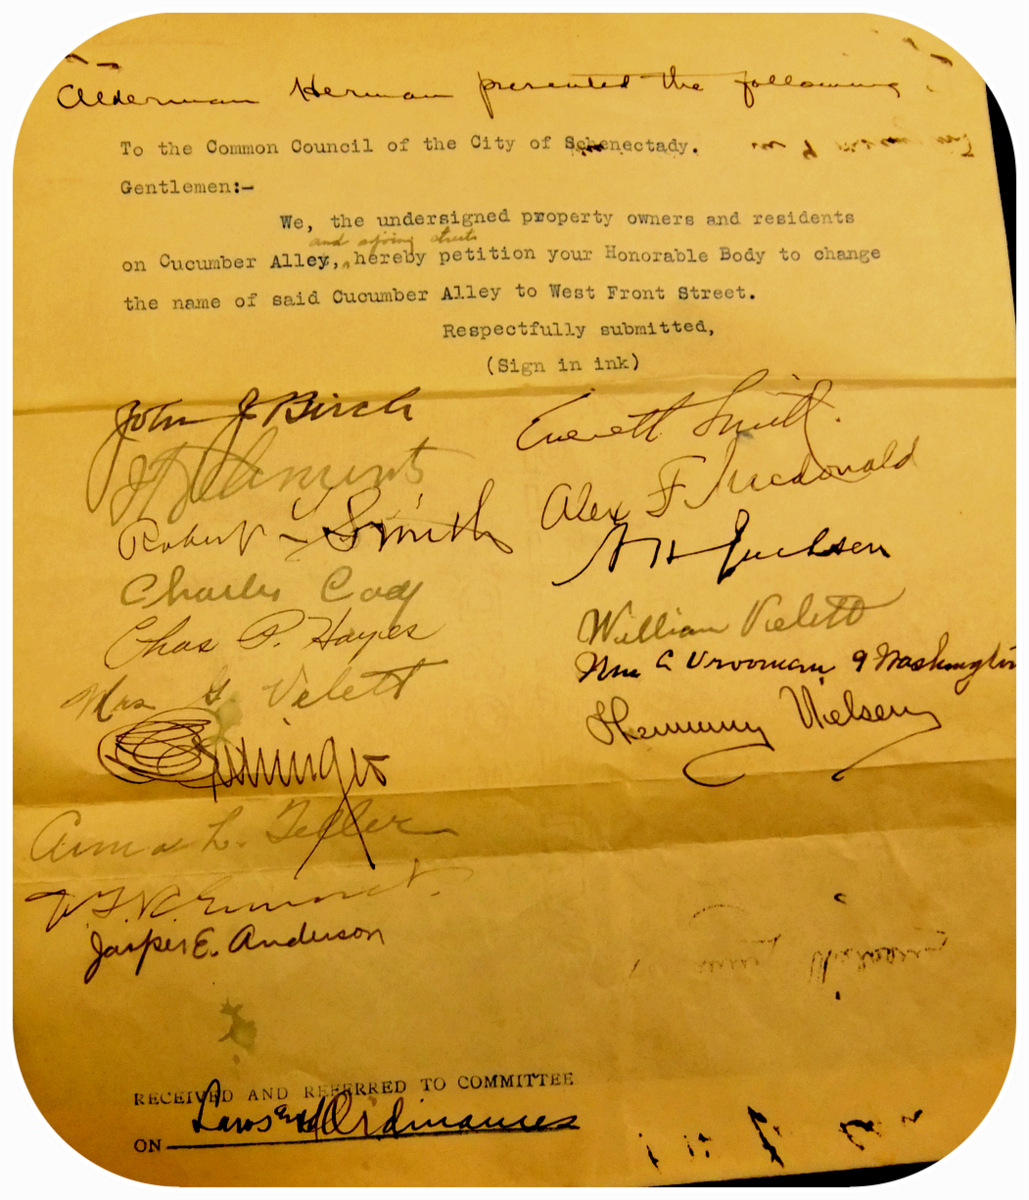 Alderman Herman presented the following.
To the Common Council of the City of Schenectady.
Gentlemen:-
We, the undersigned property owners and residents
and streets
on Cucumber Alley, hereby petition your Honorable Body to change
the name of said Cucumber Alley to West Front Street.
Respectfully submitted,
(Sign in ink)
John J. Birch
Everett Smith.
Alex F Macdonald
Robert Smith
Charles Cody
Chas P. Hayes
William Velett
Mrs G. Velett
Vrooman 9 Washington
Nielsen
Anna L. Teller
Jasper E. Anderson
RECEIVED AND REFERRED TO COMMITTEE
ON Laws and Ordinances